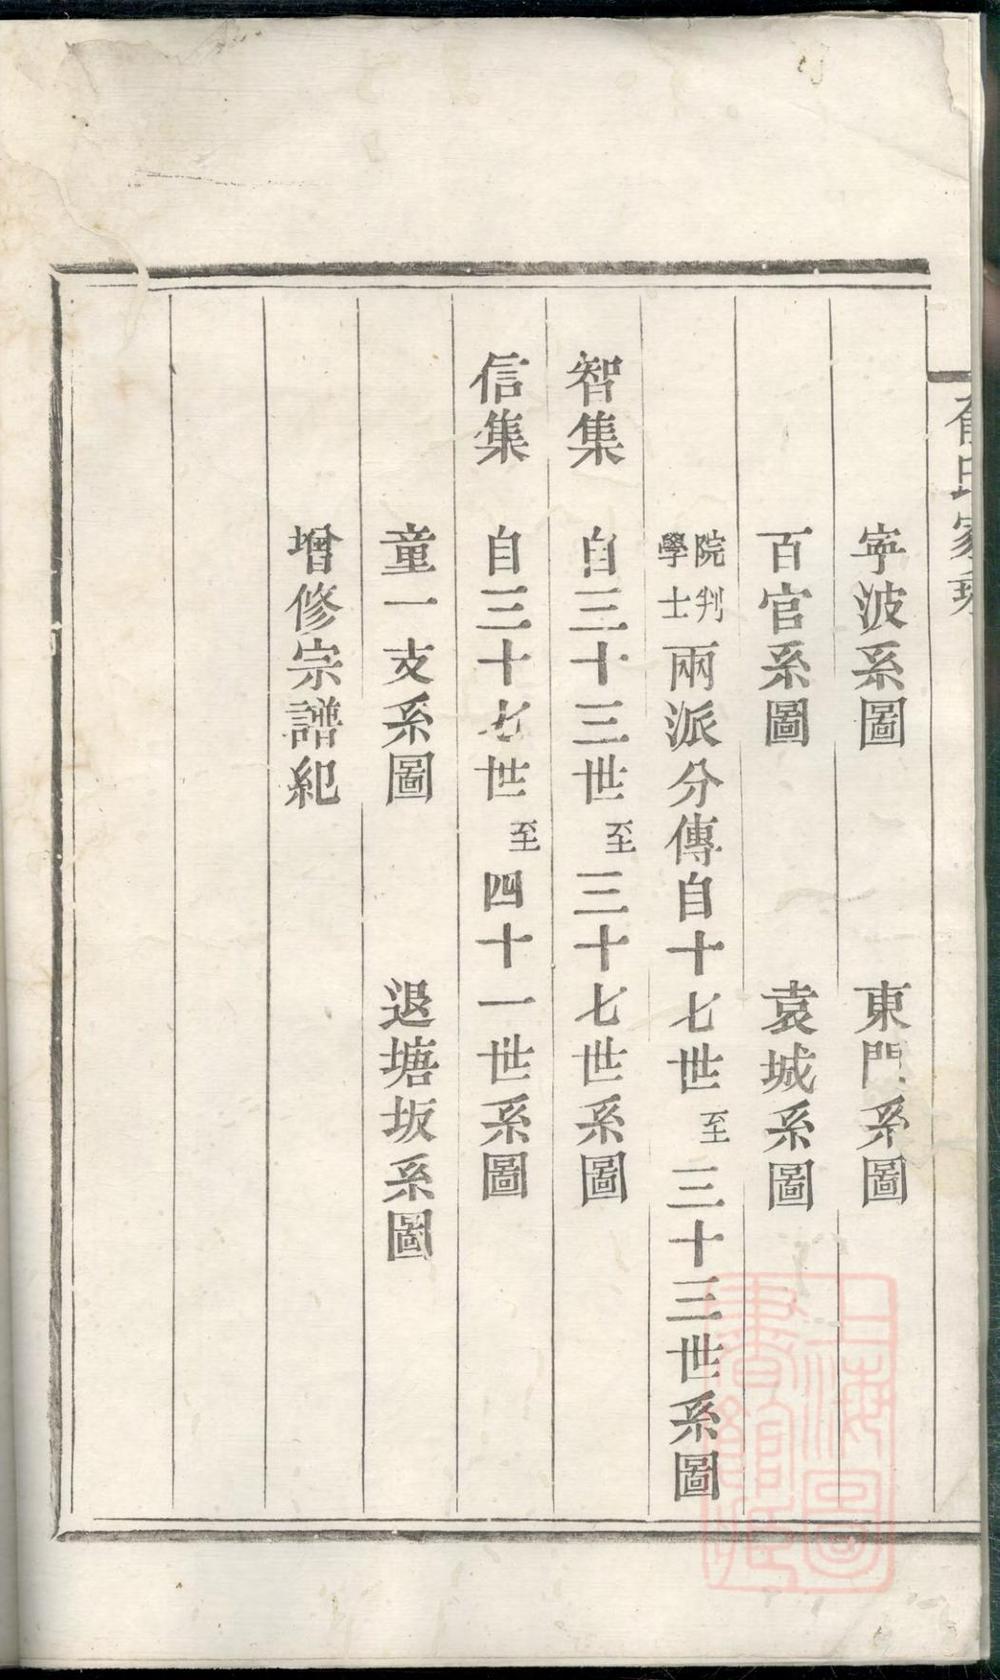 寕波系圖　東門系圖
百官系圖　袁城系圖
院判學士兩派分傳自十七世至三十三世系圖
智集　自三十三世至三十七世系圖
信集　自三十七世至四十一世系圖
童一支系圖　退塘坂系圖
增修宗譜紀
上海圖書館藏